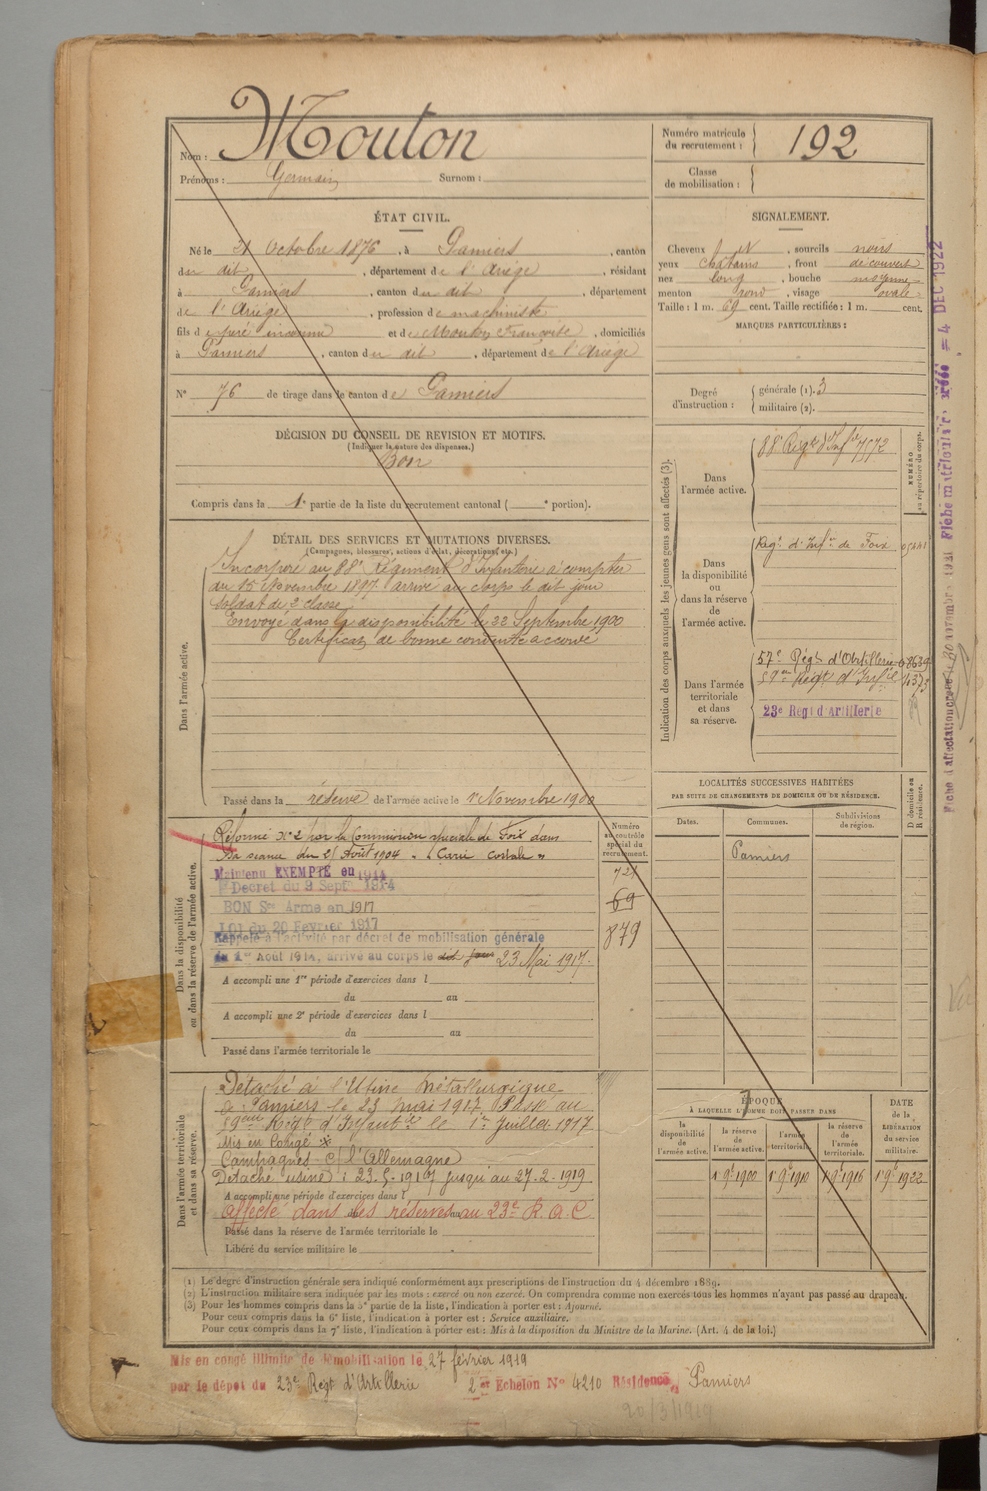 Nom : Mouton
Prénoms : Germain Surnom :
Numéro matricule du recrutement : 192
Classe de mobilisation :
ÉTAT CIVIL.
Né le 21 Octobre 1876, à Pamiers, canton
du dit, département de l'Ariège, résidant
à Pamiers, canton du dit, département
de l'Ariège, profession de machiniste
fils de père inconnu et de Mouton Françoise, domiciliés
à Pamiers, canton du dit, département de l'Ariège
N° 76 de tirage dans le canton de Pamiers
SIGNALEMENT.
Cheveux, sourcils noirs
yeux chatains, front découvert
nez long, bouche moyenne
menton rond, visage ovale
Taille : 1 m. 69 cent. Taille rectifiée : 1 m. cent.
MARQUES PARTICULIÈRES :
Degré d'instruction : générale (1). 3
militaire (2).
DÉCISION DU CONSEIL DE REVISION ET MOTIFS.
(Indiquer la nature des dispenses.)
Bon
Compris dans la 1e partie de la liste du recrutement cantonal ( e portion).
DÉTAIL DES SERVICES ET MUTATIONS DIVERSES.
(Campagnes, blessures, actions d'éclat, décorations, etc.)
Dans l'armée active.
Incorporé au 88e Régiment d'Infanterie à compter
du 15 Novembre 1897 arrivé au corps le dit jour
soldat de 2e classe
Envoyé dans la disponibilité le 22 Septembre 1900
Certificat de bonne conduite accordé
Passé dans la réserve de l'armée active le 1er Novembre 1900
Indication des corps auxquels les jeunes gens sont affectés (3).
NUMÉRO au répertoire du corps.
Dans l'armée active.
88e Régt d'Infie 7572
Dans la disponibilité ou dans la réserve de l'armée active.
Régt d'Infie de Foix
Dans l'armée territoriale et dans sa réserve.
57e Régt d'Artillerie
59e Régt d'Infie
23e Régt d'Artillerie
Dans la disponibilité ou dans la réserve de l'armée active.
Réformé N° 2 par la Commission spéciale de Foix dans
sa séance du 21 Août 1904
Maintenu EXEMPTÉ en 1914
Décret du 9 Septe 1914
BON Sce Armé en 1917
Loi du 20 Février 1917
Rappelé à l'activité par décret de mobilisation générale
du 1er Août 1914, arrivé au corps le dit jour 23 Mai 1917.
A accompli une 1re période d'exercices dans l
du au
A accompli une 2e période d'exercices dans l
du au
Passé dans l'armée territoriale le
Numéro au contrôle spécial du recrutement.
721
69
879
LOCALITÉS SUCCESSIVES HABITÉES
PAR SUITE DE CHANGEMENTS DE DOMICILE OU DE RÉSIDENCE.
Dates. Communes. Subdivisions de région. D domicile ou R résidence.
Pamiers
Dans l'armée territoriale et dans sa réserve.
Détaché à l'Usine Métallurgique
de Pamiers le 23 mai 1917 Passé au
59ème Régt d'Infanterie le 1er Juillet 1917
Mis en Congé
Campagnes c/ l'Allemagne
Détaché usine : 23.5.1917 jusqu'au 27-2-1919
A accompli une période d'exercices dans l
Affecté dans les réserves au 23e R.A.C
Passé dans la réserve de l'armée territoriale le
Libéré du service militaire le
ÉPOQUE
À LAQUELLE L'HOMME DOIT PASSER DANS
la disponibilité de l'armée active. la réserve de l'armée active. l'armée territoriale. la réserve de l'armée territoriale. DATE de la LIBÉRATION du service militaire.
1 9e 1900 1 9e 1910 1 9e 1916 1 9e 1922
(1) Le degré d'instruction générale sera indiqué conformément aux prescriptions de l'instruction du 4 décembre 1889.
(2) L'instruction militaire sera indiquée par les mots : exercé ou non exercé. On comprendra comme non exercés tous les hommes n'ayant pas passé au drapeau.
(3) Pour les hommes compris dans la 5e partie de la liste, l'indication à porter est : Ajourné.
Pour ceux compris dans la 6e liste, l'indication à porter est : Service auxiliaire.
Pour ceux compris dans la 7e liste, l'indication à porter est : Mis à la disposition du Ministre de la Marine. (Art. 4 de la loi.)
Mis en congé illimité de démobilisation le 27 février 1919
par le dépôt du 23e Régt d'Artillerie 2e Echelon N° 4210 Résidence, Pamiers
20/3/1919